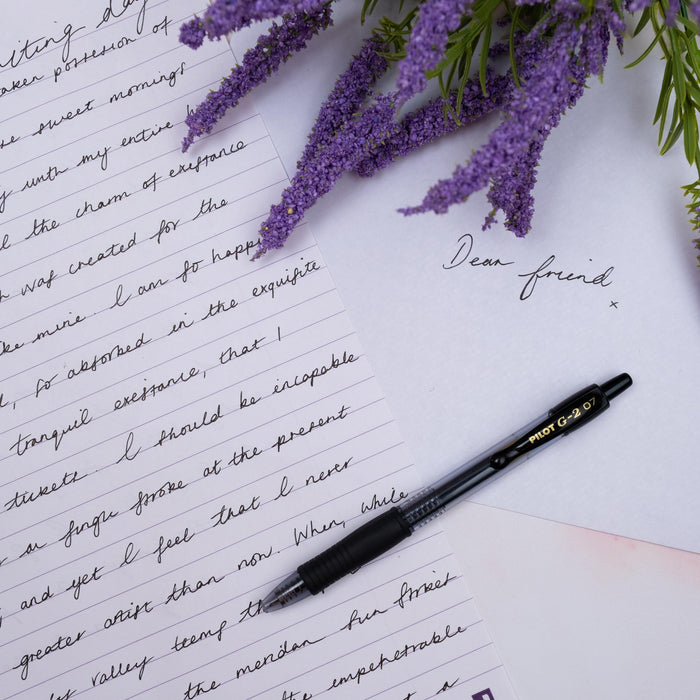 taken possession of
sweet mornings
with my entire
the charm of existance
was created for the
like mine. I am so happy
so absorbed in the exquisite
tranquil existance, that I
tickets. I should be incapable
a single stroke at the present
and yet I feel that I never
greater artist than now. When, while
valley teems
the meridan sun strikes
the impenetrable
a
Dear friend
x
PILOT G-2 07